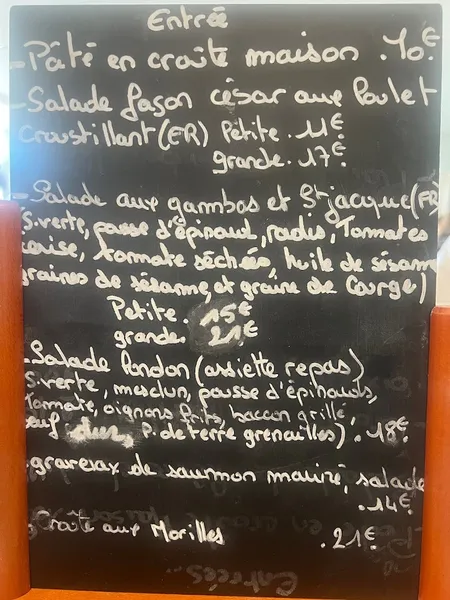 Entrée
- Pâté en croûte maison . 10€
- Salade façon césar aux Poulet
Croustillant (FR) Petite . 11€
grande . 17€
- Salade aux gambas et St jacque (FR)
S.verte, pousse d'épinaud, radis, Tomates
cerise, tomate séchées, huile de sésame
graines de sésame, et graine de Courge)
Petite. 15€
grande. 21€
- Salade London (assiette repas)
S.verte, mesclun, pousse d'épinauds,
Tomate, oignons frits, baccon grillé
œuf dur, P. de terre grenailles) . 18€
- gravelax de saumon mariné, salade
. 14€
- Croûte aux Morilles . 21€